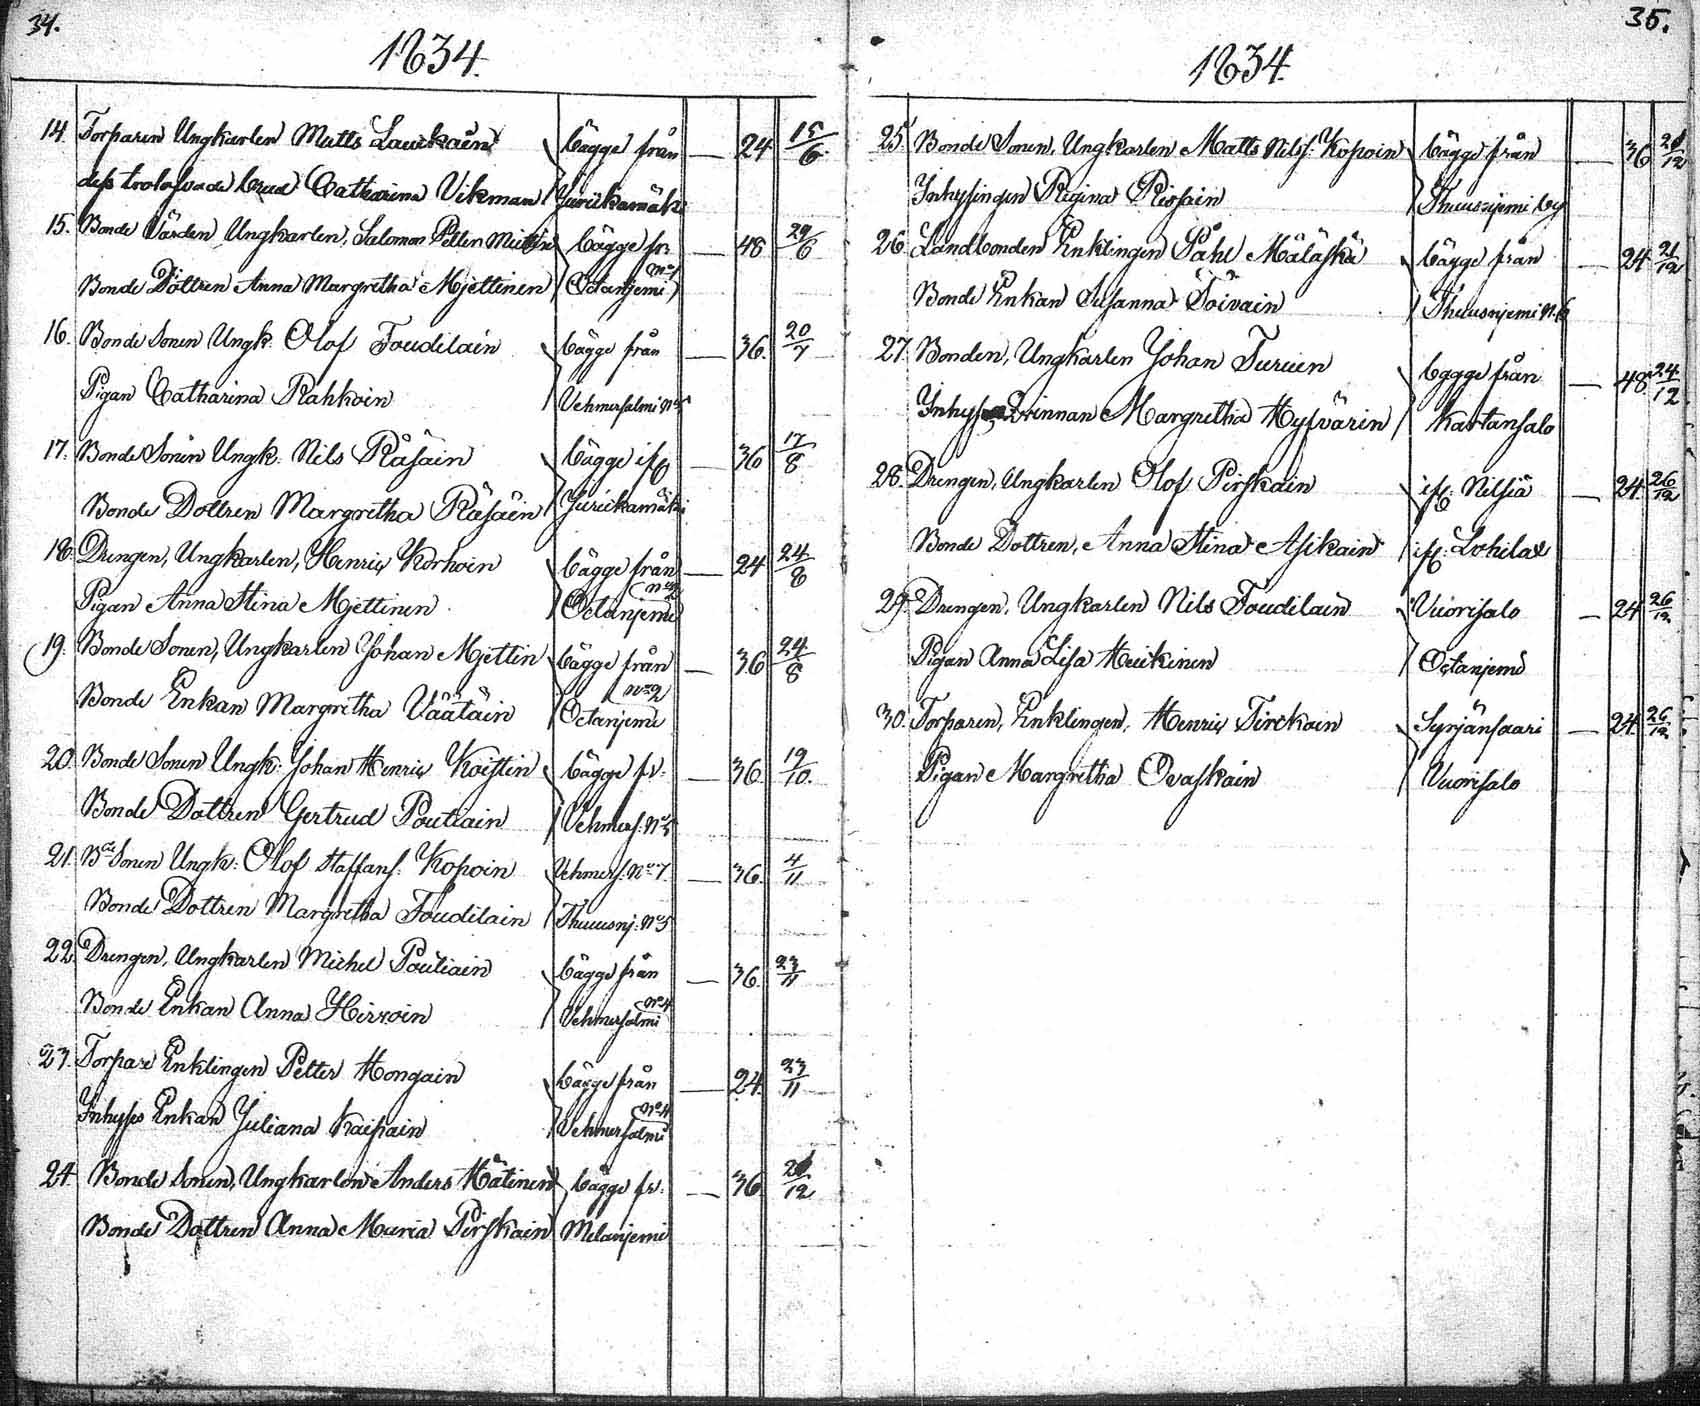 34.
1834.
14. Torparen Ungkarlen Matts Lauckain bägge från — 24 15/6.
dess trolofvade brud Catharina Vikman Jurickamäki
15. Bonde Värden Ungkarlen, Salomon Petter Miettin bägge fr: — 48 29/6
Bonde Dottren Anna Margretha Mjettinen Octanjemi No 1
16. Bonde Sonen Ungk. Olof Toudilain bägge från — 36. 20/7
Pigan Catharina Rahkoin Vehmersalmi No 5
17. Bonde Sonen Ungk: Nils Räsäin bägge ifr. — 36 17/8
Bonde Dottren Margretha Räsäin Jurickamäki
18. Drengen, Ungkarlen, Henric Korhoin bägge från — 24 24/8
Pigan Anna Stina Mjettinen. Octanjemi No 2
19. Bonde Sonen, Ungkarlen Johan Mjettin bägge från — 36 24/8
Bonde Enkan Margretha Väätäin Octanjemi No 2
20. Bonde Sonen Ungk: Johan Henric Koistin bägge fr: — 36. 19/10.
Bonde Dottren Gertrud Poutiain Vehmers: No 5
21. Bde Sonen Ungk: Olof Staffans: Kopoin Vehmers: No 7. — 36. 4/11
Bonde Dottren Margretha Toudilain Thuusnj: No 5
22. Drengen, Ungkarlen Michel Poutiain bägge från — 36. 23/11
Bonde Enkan Anna Hirvoin Vehmersalmi No 4
23. Torpare Enklingen Petter Hongain bägge från — 24. 23/11
Inhyses Enkan Juliana Kaipain Vehmersalmi No 4
24. Bonde Sonen, Ungkarlen Anders Hätinen bägge fr: — 36 21/12
Bonde Dottren Anna Maria Pirskain Melanjemi
35.
1834.
25. Bonde Sonen, Ungkarlen Matts Nilss: Kopoin bägge från — 36 21/12
Inhysingen Regina Rissain Thuusnjemi by
26. Landbonden Enklingen Påhl Mäläskä bägge från — 24 21/12
Bonde Enkan Susanna Toivain Thuusnjemi N. 6
27. Bonden, Ungkarlen Johan Turuen bägge från — 48 24/12.
Inhyses Qvinnan Margretha Hyfvärin Kartansalo
28. Drengen, Ungkarlen Olof Pirskain ifr. Nilsiä — 24 26/12
Bonde Dottren, Anna Stina Asikain ifr: Lohilax
29. Drengen, Ungkarlen Nils Toudilain Vuorisalo — 24 26/12
Pigan Anna Lisa Heickinen Octanjemi
30. Torparen, Enklingen, Henric Tirckain Syrjänsaari — 24. 26/12
Pigan Margretha Ovaskain Vuorisalo